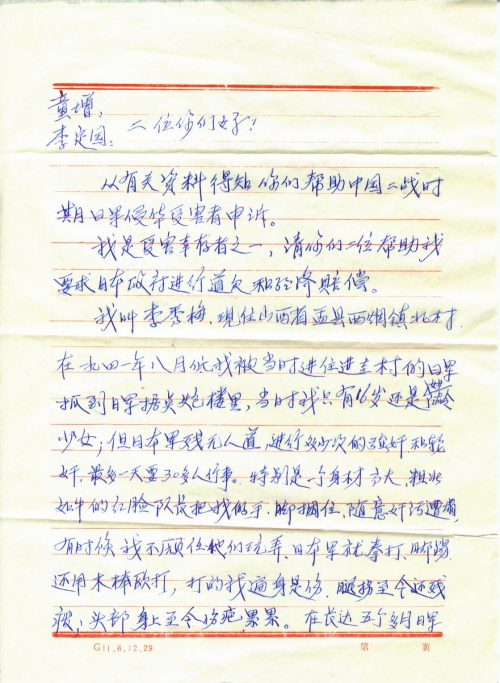 童增:
李定国: 二位你们好!
从有关资料得知你们帮助中国二战时
期日军侵华受害者申诉。
我是受害幸存者之一,请你们二位帮助我
要求日本政府进行道欠和经济赔偿。
我叫李秀梅,现住山西省盂县西烟镇北村.
在一九四一年八月份,我被当时进住进圭村的日军
抓到日军据点炮楼里,当时我只有16岁还是
少女;但日本军残无人道,进行多次的强奸和轮
奸,最多一天要30多人行事。特别是一个身材高大,粗壮
如牛的红脸队长把我的手、脚捆住,随意奸污
有时候我不顺从他们玩弄,日本军就拳打、脚踢
还用木棒欧打,打的我遍身是伤,腿拐至今还残
疾;头部身上至今伤疤累累。在长达五个多月日军
G11.6.12.29 第 页